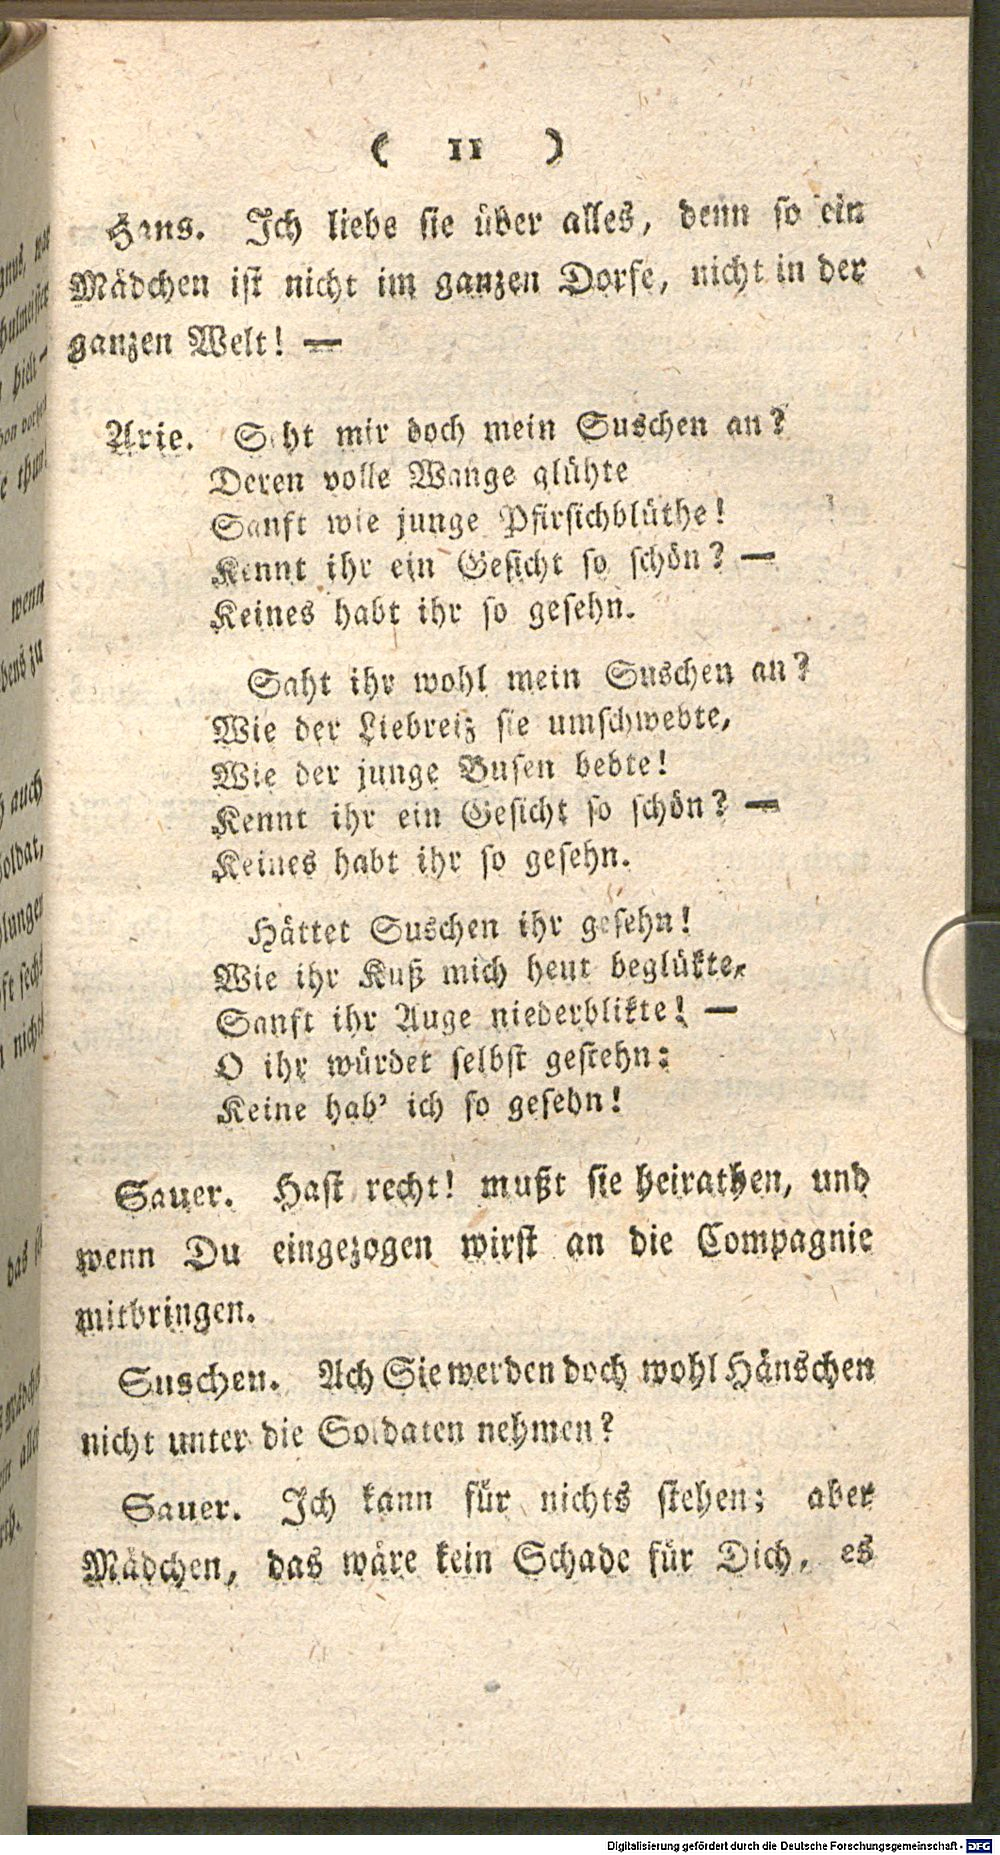 ( 11 )
Hans. Ich liebe sie über alles, denn so ein
Mädchen ist nicht im ganzen Dorfe, nicht in der
ganzen Welt! —
Arie. Seht mir doch mein Suschen an?
Deren volle Wange glühte
Sanft wie junge Pfirsichblüthe!
Kennt ihr ein Gesicht so schön? —
Keines habt ihr so gesehn.
Saht ihr wohl mein Suschen an?
Wie der Liebreiz sie umschwebte,
Wie der junge Busen bebte!
Kennt ihr ein Gesicht so schön? —
Keines habt ihr so gesehn.
Hättet Suschen ihr gesehn!
Wie ihr Kuß mich heut beglükte,
Sanft ihr Auge niederblikte! —
O ihr würdet selbst gestehn:
Keine hab' ich so gesehn!
Sauer. Hast recht! mußt sie heirathen, und
wenn Du eingezogen wirst an die Compagnie
mitbringen.
Suschen. Ach Sie werden doch wohl Hänschen
nicht unter die Soldaten nehmen?
Sauer. Ich kann für nichts stehen; aber
Mädchen, das wäre kein Schade für Dich, es
Digitalisierung gefördert durch die Deutsche Forschungsgemeinschaft - DFG